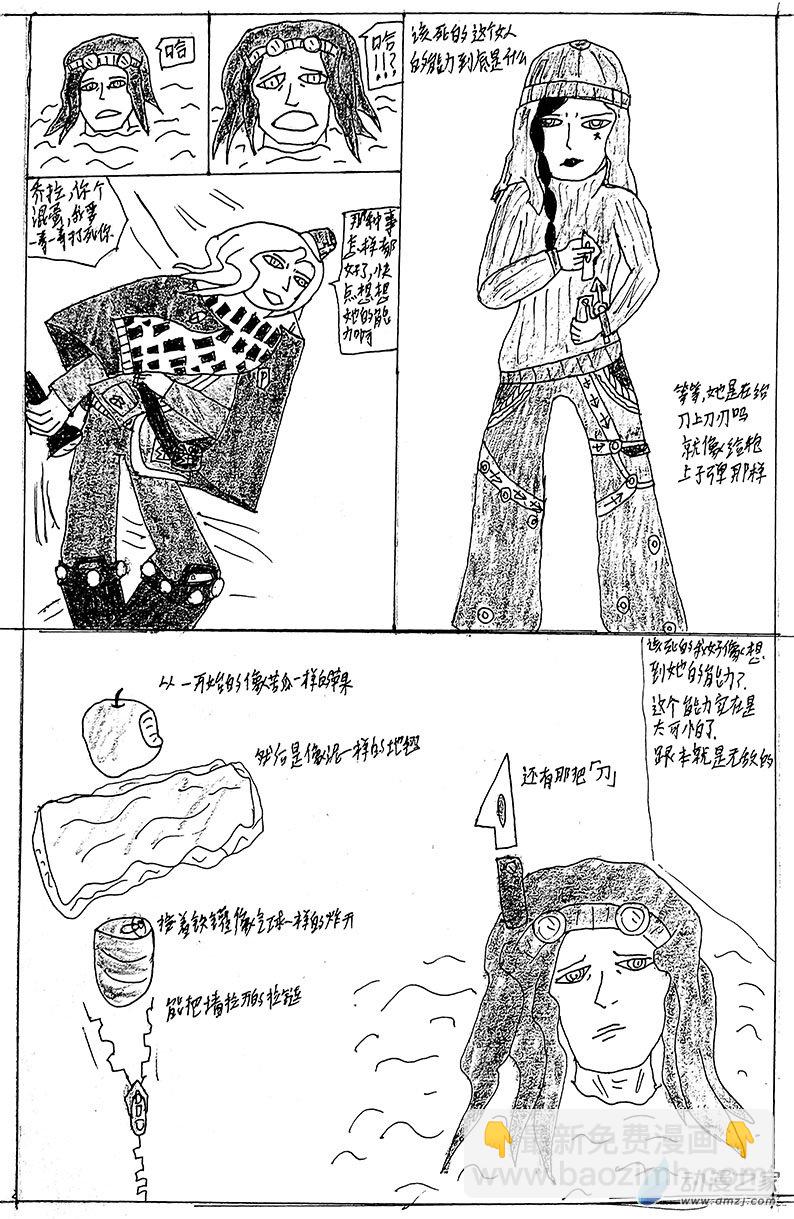 哈
哈
!!?
该死的这个女人
的能力到底是什么
乔拉,你个
混蛋,我要
一毒一毒打死你
那种事
怎样都
好了,快
点想想
她的能
力啊
等等,她是在给
刀上刀刃吗
就像给枪
上子弹那样
从一开始的像苦瓜一样的苹果
然后是像泥一样的地
接着铁罐像气球一样的炸开
能把墙拉开的拉链
还有那把「刀」
该死的我好像想
到她的能力了
这个能力实在是
太可怕了
跟本就是无敌的
最新免费漫画
www.baozimh.com
动漫之家
www.dmzj.com